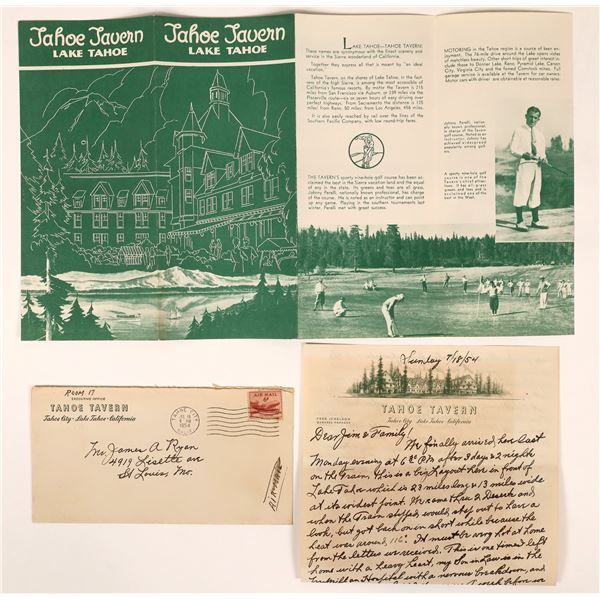 Tahoe Tavern
LAKE TAHOE
Tahoe Tavern
LAKE TAHOE
LAKE TAHOE—TAHOE TAVERN:
These names are synonymous with the finest scenery and service in the Sierra wonderland of California.
Together they express all that is meant by "an ideal vacation."
Tahoe Tavern, on the shores of Lake Tahoe, in the fastness of the high Sierra, is among the most accessible of California's famous resorts. By motor the Tavern is 215 miles from San Francisco via Auburn, or 239 miles via the Placerville route—six or seven hours of easy driving over perfect highways. From Sacramento the distance is 125 miles; from Reno, 50 miles; from Los Angeles, 456 miles.
It is also easily reached by rail over the lines of the Southern Pacific Company, with low round-trip fares.
THE TAVERN'S sporty nine-hole golf course has been acclaimed the best in the Sierra vacation land and the equal of any in the state. Its greens and tees are all grass. Johnny Perelli, nationally known professional, has charge of the course. He is noted as an instructor and can point up any game. Playing in the southern tournaments last winter, Perelli met with great success.
MOTORING in the Tahoe region is a source of keen enjoyment. The 76-mile drive around the Lake spans vistas of matchless beauty. Other short trips of great interest include those to Donner Lake, Reno, Pyramid Lake, Carson City, Virginia City and the famed Comstock mines. Full garage service is available at the Tavern for car owners. Motor cars with driver are obtainable at reasonable rates.
Johnny Perelli, nationally known professional, is in charge of the Tavern golf course. Johnny has achieved widespread popularity among golfers.
A sporty nine-hole golf course is one of the Tavern's chief attractions. It has all-grass greens and tees and is acclaimed one of the best in the West.
ROOM 17
EXECUTIVE OFFICE
TAHOE TAVERN
Tahoe City - Lake Tahoe - California
TAHOE CITY
1954
CALIF.
AIR MAIL
6¢
Mr. James A Ryan
4919 Lisette ave
St Louis, Mo.
AIRMAIL
Sunday 7/18/54
TAHOE TAVERN
Tahoe City Lake Tahoe California
GENERAL MANAGER
Dear Jim & Family!
We finally arrived here last
Monday evening at 6:00 P.M. after 3 days & 2 nights
on the Train, This is a big layout here in front of
Lake Tahoe which is 23 miles long & 13 miles wide
at its widest point. We came thru 2 Deserts and
when the Train stopped, would step out to have a
look, but got back on in short while because the
heat was around 116°. It must be very hot at home
from the letters we received. This is one time I left
home with a heavy heart, my Son in Law is in the
Hospital with a nervous breakdown, and